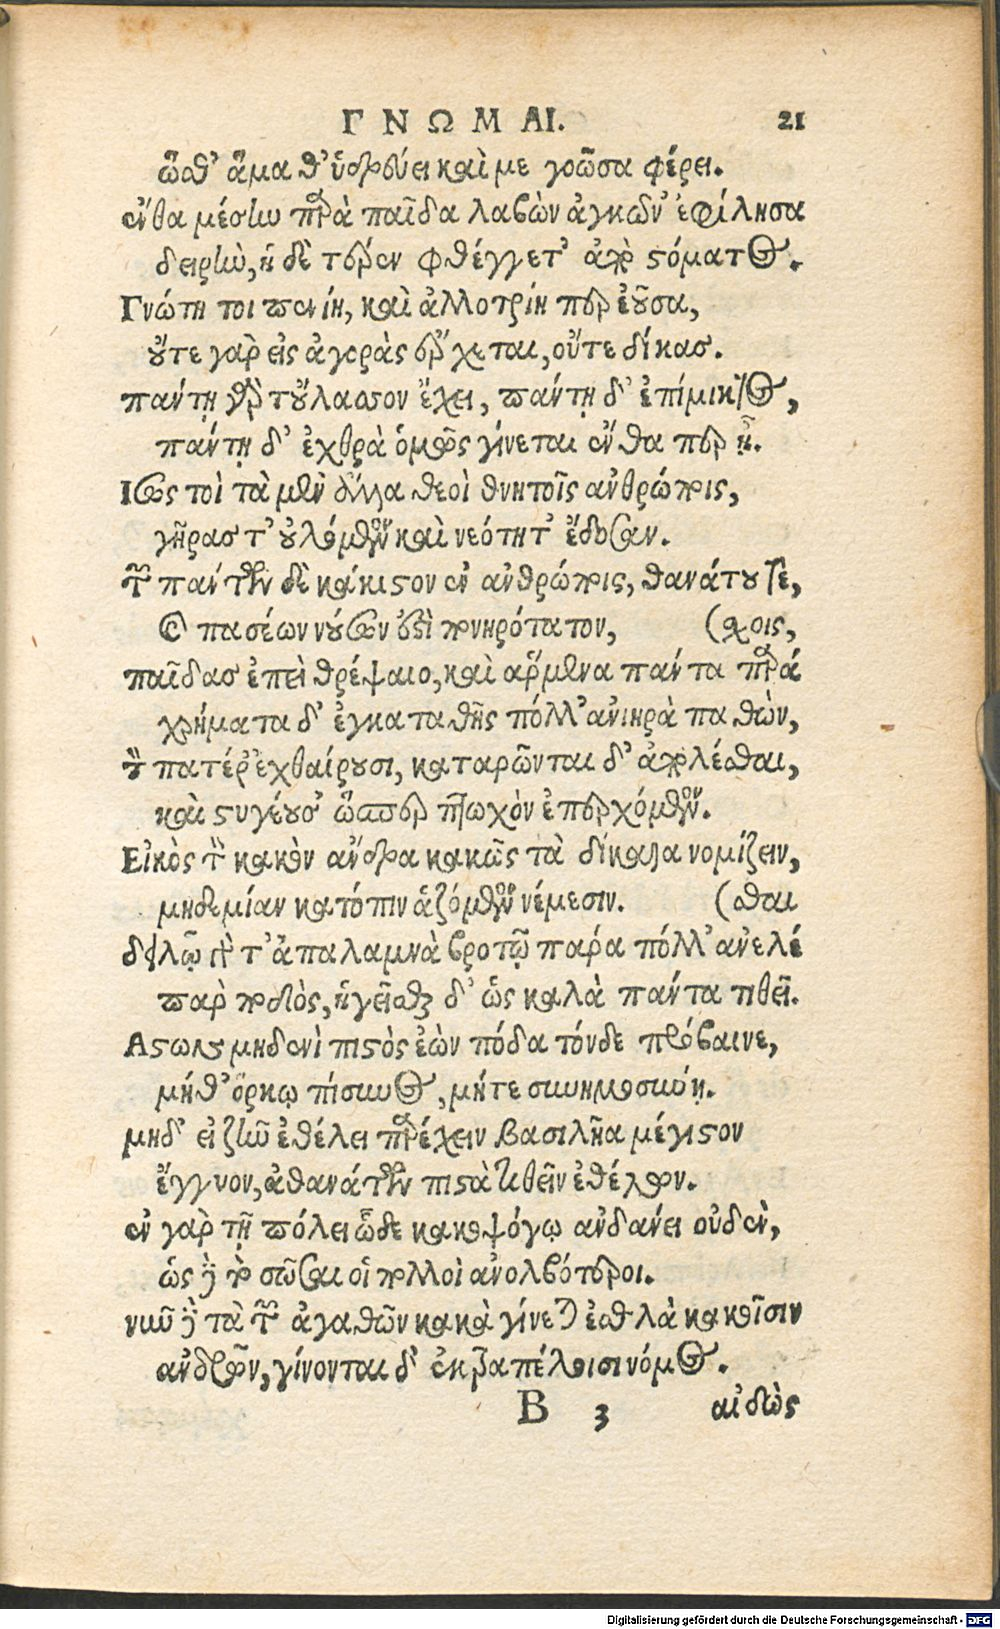 ΓΝΩΜΑΙ. 21
ὥσθ' ἅμα θ' ὑδρεύει καὶ με γοῶσα φέρει.
ἔνθα μέσην περὰ παῖδα λαβὼν ἀγκῶν' ἐφίλησα
δειρὴν, ἡ δὲ τέρεν φθέγγετ' ἀπὸ στόματος.
Γνώτη τοι πενίη, καὶ ἀλλοτρίη περ ἐοῦσα,
οὔτε γὰρ εἰς ἀγορὰς ἔρχεται, οὔτε δίκας.
πάντη γὰρ τοὔλασσον ἔχει, πάντη δ' ἐπίμικτος,
πάντη δ' ἐχθρὰ ὁμῶς γίνεται ἔνθα περ ᾖ.
Ισως τοὶ τὰ μὲν ἄλλα θεοὶ θνητοῖς ἀνθρώποις,
γῆρας τ' οὐλόμενον καὶ νεότητ' ἔδοσαν.
τῶν πάντων δὲ κάκιστον ἐν ἀνθρώποις, θανάτου τε,
καὶ πασέων νούσων ἐστὶ πονηρότατον, (χοις,
παῖδας ἐπεὶ θρέψαιο, καὶ ἄρμενα πάντα παρά
χρήματα δ' ἐγκαταθῇς πόλλ' ἀνιηρὰ παθὼν,
τὸν πατέρ' ἐχθαίρουσι, καταρῶνται δ' ἀπολέσθαι,
καὶ στυγέουσ' ὥσπερ πτωχὸν ἐπερχόμενον.
Εἰκὸς τὸν κακὸν ἄνδρα κακῶς τὰ δίκαια νομίζειν,
μηδεμίαν κατόπιν ἁζόμενον νέμεσιν. (σθαι
δειλῷ γὰρ τ' ἀπαλαμνὰ βροτῷ παρά πόλλ' ἀνελέ
παρ ποδὸς, ἡγεῖσθαι δ' ὡς καλὰ πάντα τιθεῖ.
Αστῶν μηδενὶ πιστὸς ἐὼν πόδα τόνδε πρόβαινε,
μήθ' ὅρκῳ πίσυνος, μήτε συνημοσύνῃ.
μηδ' εἰ ζῆν ἐθέλει παρέχειν βασιλῆα μέγιστον
ἔγγυον, ἀθανάτων πιστὰ τιθεῖν ἐθέλων.
ἐν γὰρ τῇ πόλει ὧδε κακοψόγῳ ἁνδάνει οὐδὲν,
ὡς δὲ τὸ σῶσαι οἱ πολλοὶ ἀνολβότεροι.
νῦν δὲ τὰ τῶν ἀγαθῶν κακὰ γίνεται ἐσθλὰ κακοῖσιν
ἀνδρῶν, γίνονται δ' ἐκτραπέλοισι νόμος.
B 3 αἰδὼς
Digitalisierung gefördert durch die Deutsche Forschungsgemeinschaft - DFG